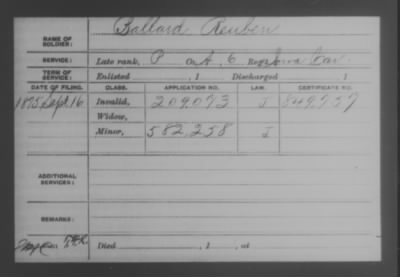 Ballard Reuben
NAME OF SOLDIER:
SERVICE: Late rank, P Co. A, 6 Reg't Iowa Cav.
TERM OF SERVICE: Enlisted , 1 Discharged , 1
DATE OF FILING. CLASS. APPLICATION NO. LAW. CERTIFICATE NO.
1875 Sept 16 Invalid, 209,073 J 849,757
Widow,
Minor, 582,258 J
ADDITIONAL SERVICES:
REMARKS:
Died , 1 , at